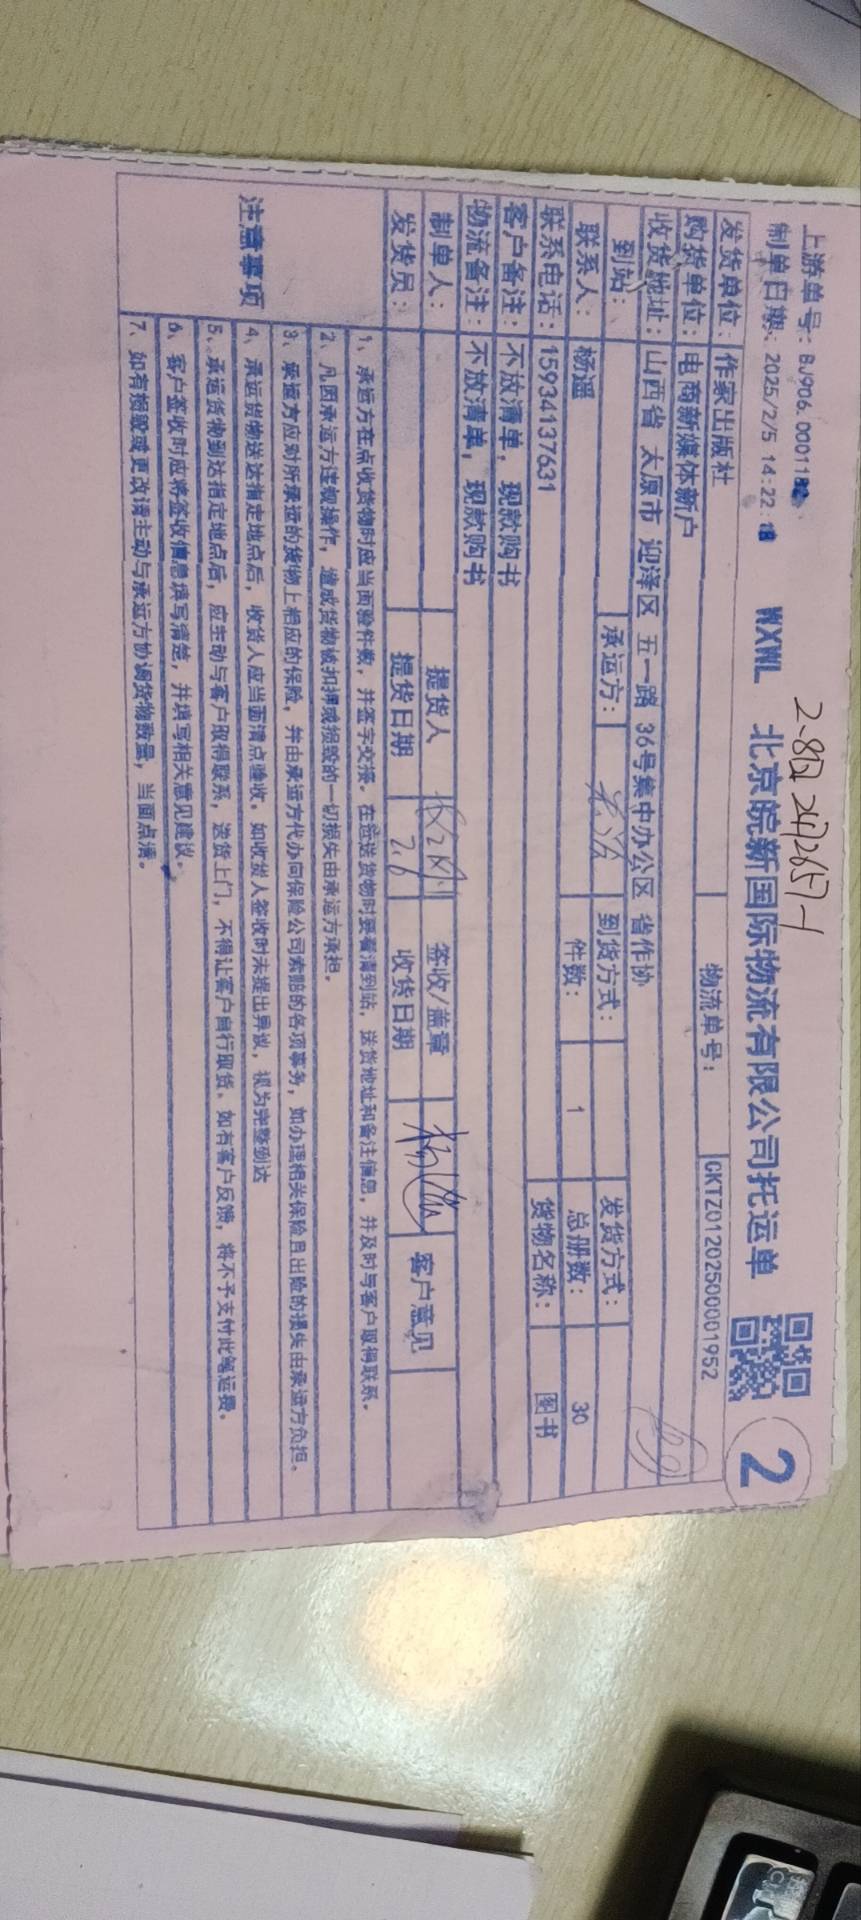 上游单号：BJ906.000118
制单日期：2025/2/5 14:22:18
2.8日 2472657-1
WXWL 北京皖新国际物流有限公司托运单
2
发货单位：作家出版社 物流单号： CKTZ012025000001952
购货单位：电商新媒体新户
收货地址：山西省 太原市 迎泽区 五一路 36号集中办公区 省作协
到站： 承运方： 到货方式： 发货方式：
联系人：杨遥 件数： 1 总册数： 30
联系电话：15934137631 货物名称： 图书
客户备注：不放清单，现款购书
物流备注：不放清单，现款购书
制单人： 提货人 签收/盖章 杨遥 客户意见
发货员： 提货日期 2.6 收货日期
注意事项
1、承运方在点收货物时应当面验件数，并签字交接。在运送货物时要看清到站，送货地址和备注信息，并及时与客户取得联系。
2、凡因承运方违规操作，造成货物被扣押或损毁的一切损失由承运方承担。
3、承运方应对所承运的货物上相应的保险，并由承运方代办向保险公司索赔的各项事务，如办理相关保险且出险的损失由承运方负担。
4、承运货物送达指定地点后，收货人应当面清点验收，如收货人签收时未提出异议，视为完整到达
5、承运货物到达指定地点后，应主动与客户取得联系，送货上门，不得让客户自行取货。如有客户反馈，将不予支付此笔运费。
6、客户签收时应将签收信息填写清楚，并填写相关意见建议。
7、如有损毁或更改请主动与承运方协调货物数量，当面点清。